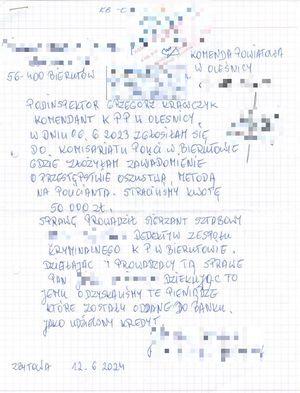 KB-E
KOMENDA POWIATOWA
W OLEŚNICY
56-400 BIERUTÓW
PODINSPEKTOR GRZEGORZ KRAWCZYK
KOMENDANT K P P W OLEŚNICY,
W DNIU 06.6 2023 ZGŁOSIŁAM SIĘ
DO KOMISARIATU POLICJI W BIERUTOWIE
GDZIE ZŁOŻYŁAM ZAWIADOMIENIE
O PRZESTĘPSTWIE OSZUSTWA, METODĄ
NA POLICJANTA. STRACILIŚMY KWOTĘ
50 000 ZŁ.
SPRAWĘ PROWADZIŁ SIERŻANT SZTABOWY
DETEKTYW ZESPOŁU
KRYMINALNEGO K P W BIERUTOWIE.
DZIAŁAJĄC I PROWADZĄCY TĄ SPRAWĘ
PAN DZIĘKUJĄC TO
JEMU ODZYSKALIŚMY TE PIENIĄDZE
KTÓRE ZOSTAŁY ODDANE DO BANKU.
JAKO UDZIELONY KREDYT.
12.6 2024